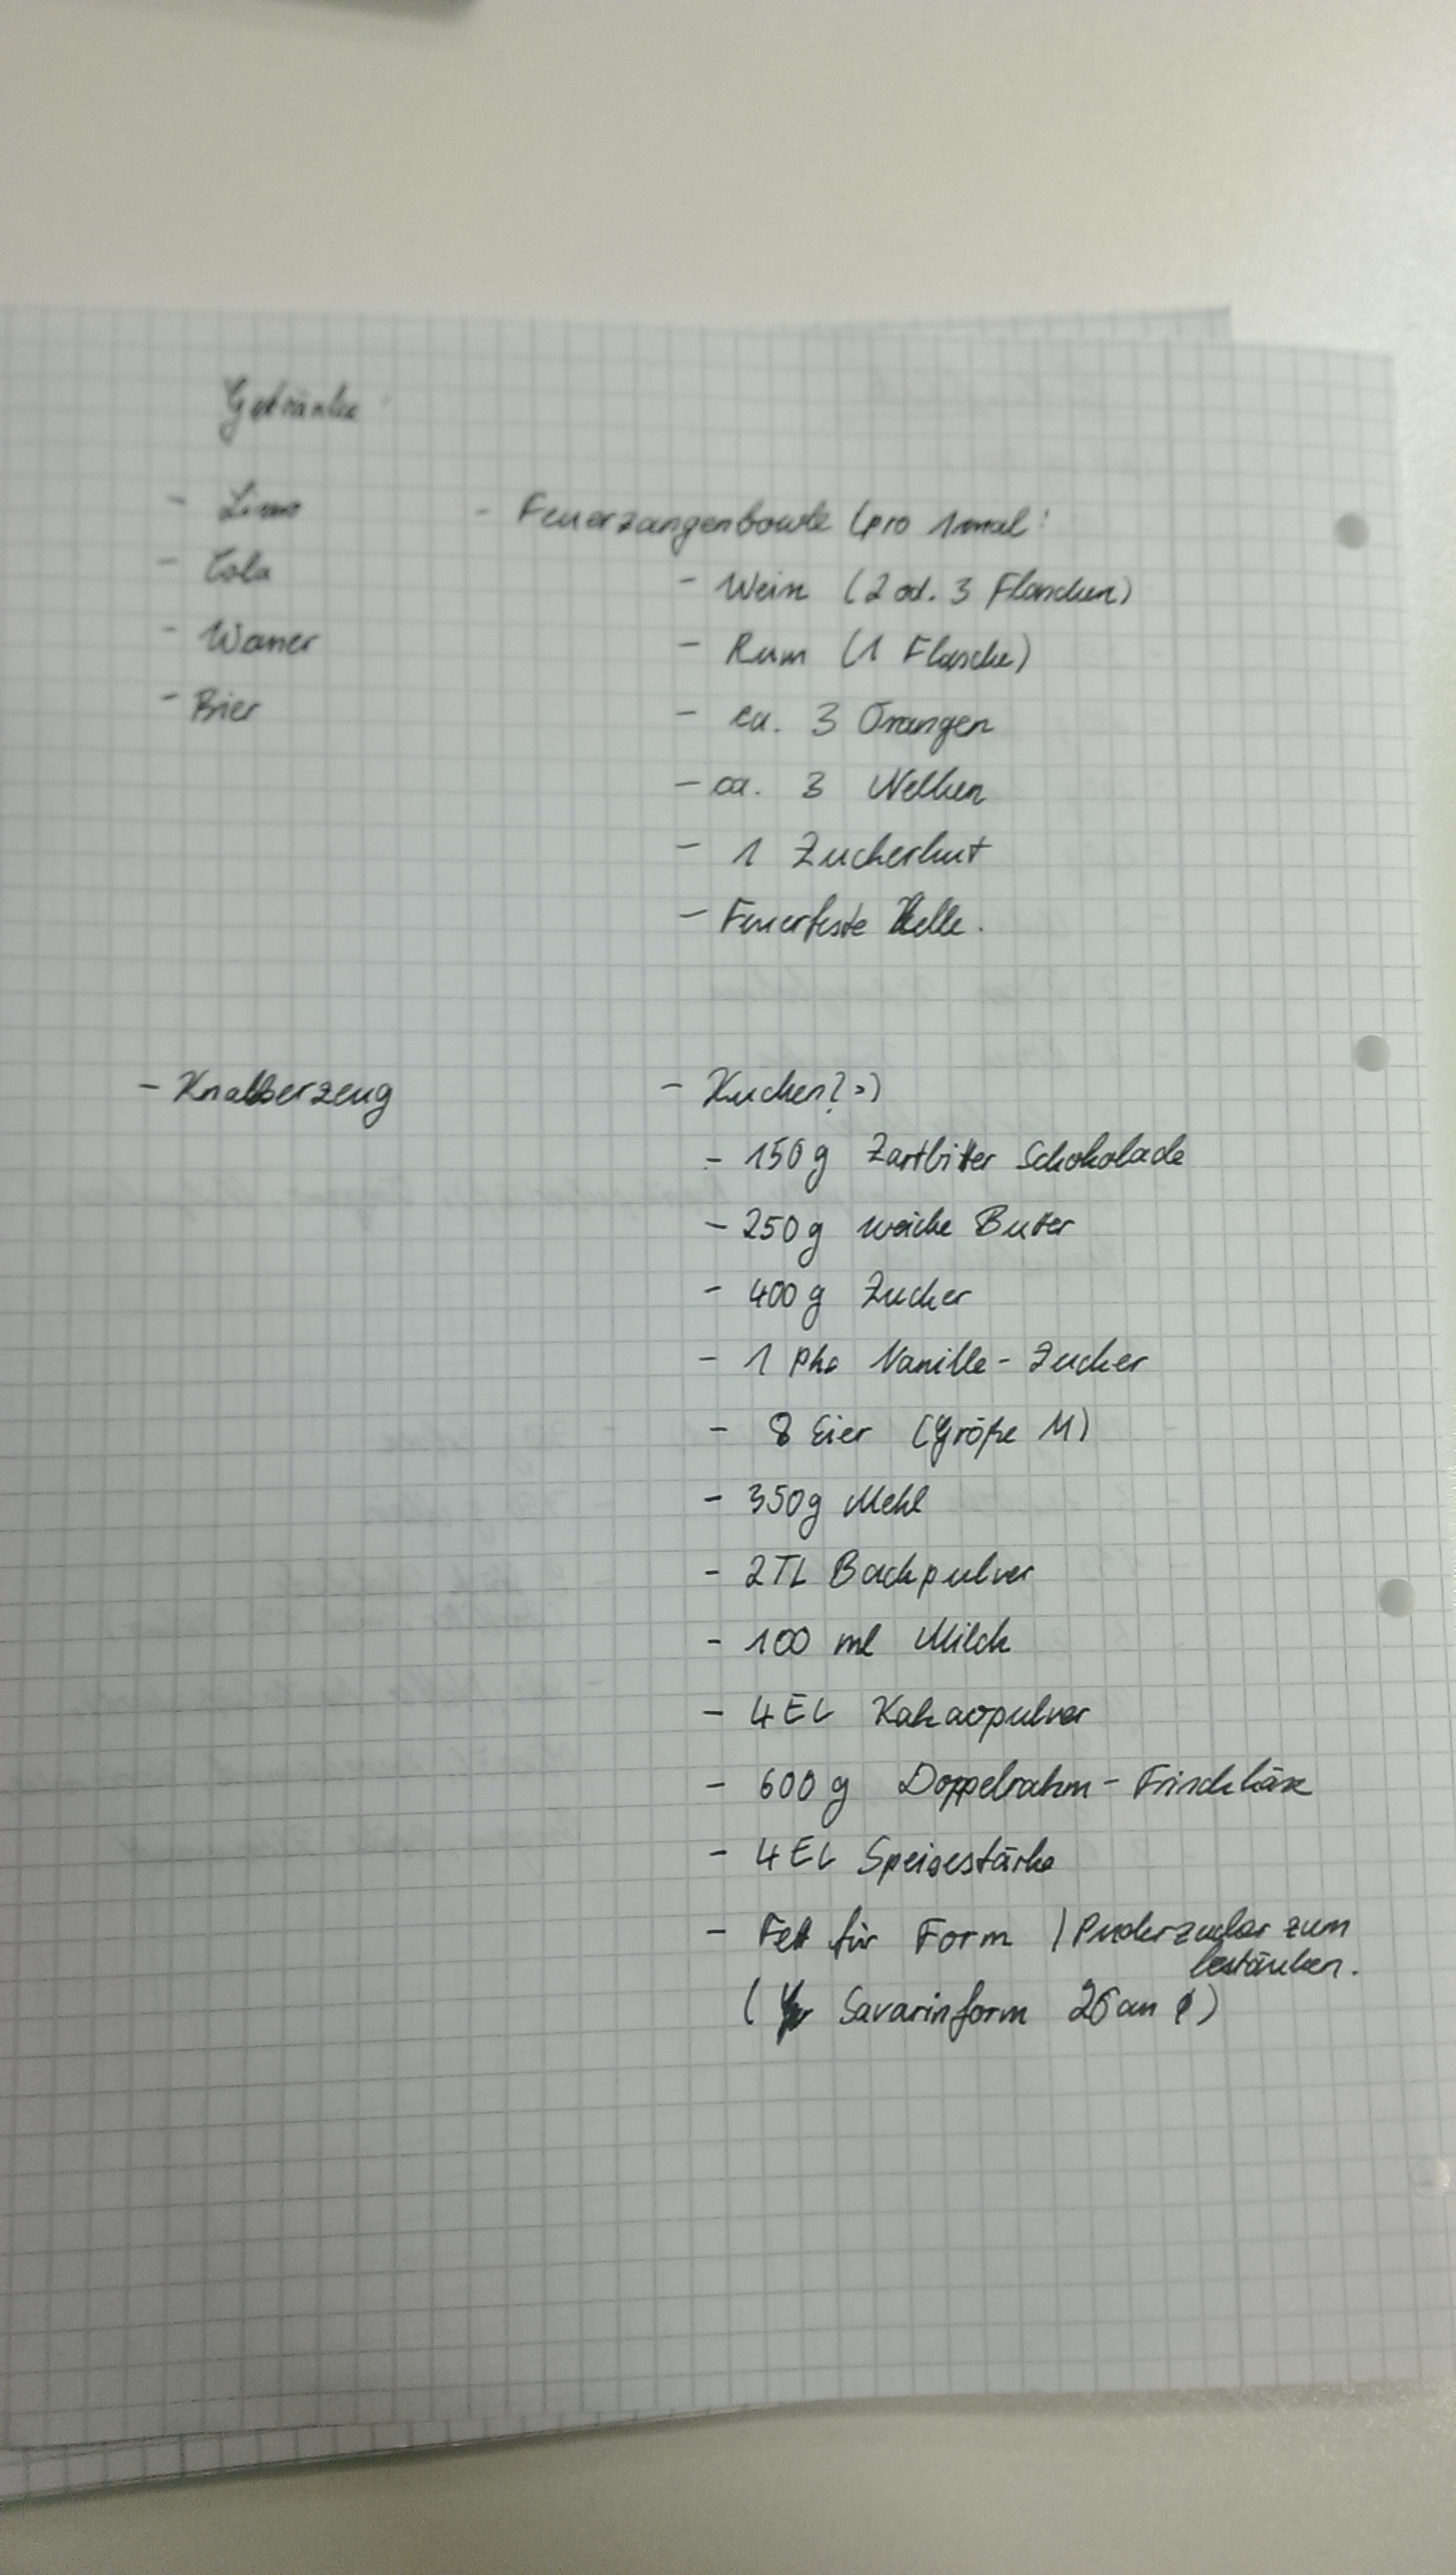 Getränke:
- Limo
- Cola
- Wasser
- Bier
- Feuerzangenbowle (pro 1mal:
- Wein (2 od. 3 Flaschen)
- Rum (1 Flasche)
- ca. 3 Orangen
- ca. 3 Nelken
- 1 Zuckerhut
- Feuerfeste Kelle.
- Knabberzeug
- Kuchen? :)
- 150g Zartbitter Schokolade
- 250g weiche Butter
- 400g Zucker
- 1 Pkg Vanille-Zucker
- 8 Eier (Größe M)
- 350g Mehl
- 2TL Backpulver
- 100 ml Milch
- 4 EL Kakaopulver
- 600g Doppelrahm-Frischkäse
- 4 EL Speisestärke
- Fett für Form / Puderzucker zum
bestäuben.
( Savarinform 26cm ∅)